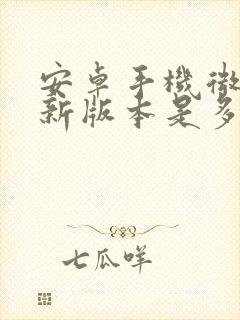 安卓手機微
新版本是多
七瓜咩